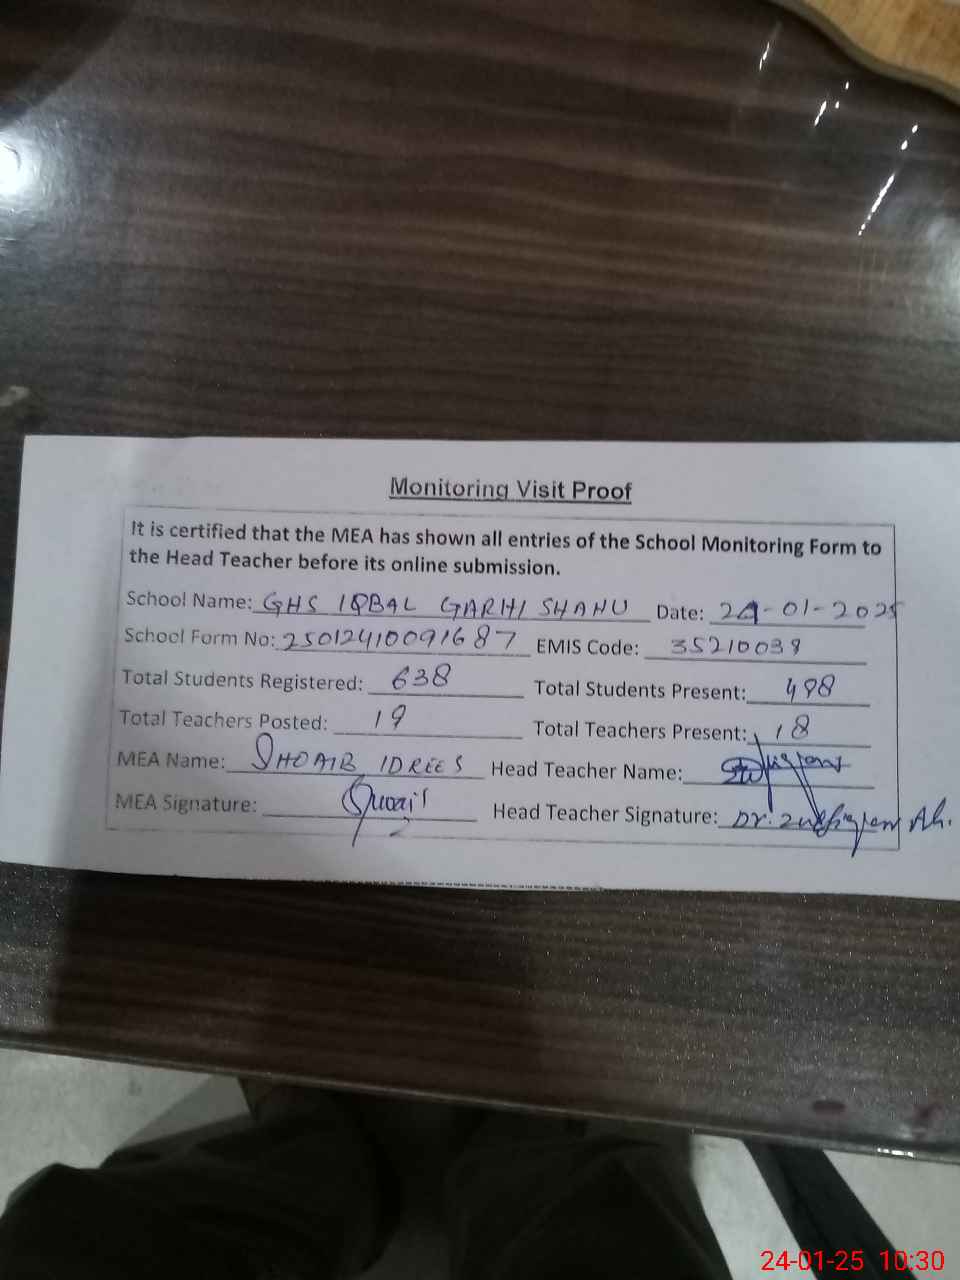 Monitoring Visit Proof
It is certified that the MEA has shown all entries of the School Monitoring Form to
the Head Teacher before its online submission.
School Name: GHS IQBAL GARHI SHAHU Date: 24-01-2025
School Form No: 25012410091687 EMIS Code: 35210039
Total Students Registered: 638 Total Students Present: 498
Total Teachers Posted: 19 Total Teachers Present: 18
MEA Name: SHOAIB IDREES Head Teacher Name:
MEA Signature: Head Teacher Signature: Dr.
24-01-25 10:30